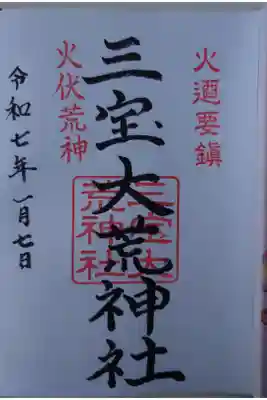 火廼要鎮
三宝大荒神社
三宝大
荒神社
火伏荒神
令和七年一月七日